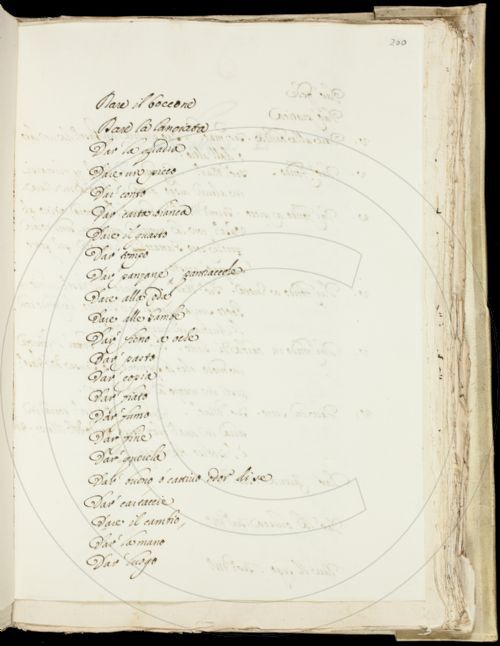 200
Dare il boccone
Dare la lanonata
Dar la quadra
Dare un picco
Dar conto
Dar carta bianca
Dare il guasto
Dar tempo
Dar panzane, pantraccole
Dare alla
Dare alle gambe
Dar fieno a oche
Dar pasto
Dar copia
Dar fiato
Dar fumo
Dar fine
Dar querela
Dar buono ò cattivo odor di se
Dar cartaccie
Dare il cambio,
Dar la mano
Dar luogo